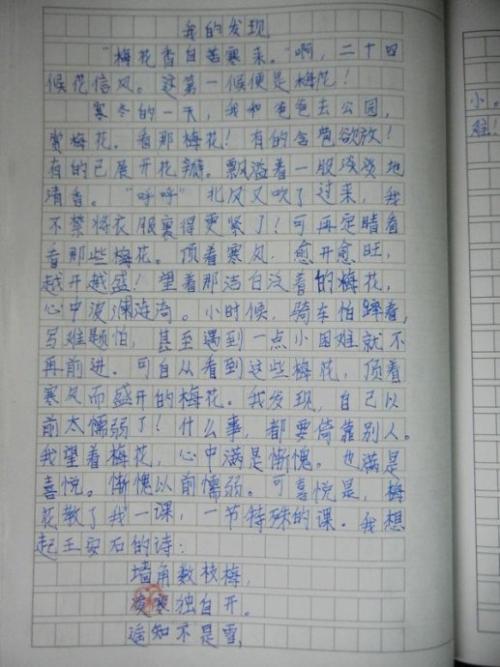 我的发现
“梅花香自苦寒来。”啊,二十四
候花信风。这第一候便是梅花!
寒冬的一天,我和爸爸去公园,
赏梅花。看那梅花!有的含苞欲放!
有的已展开花瓣。飘溢着一股淡淡地
清香。“呼呼”北风又吹了过来,我
不禁将衣服裹得更紧了!可再定睛看
看那些梅花。顶着寒风,愈开愈旺,
越开越盛!望着那洁白泛着的梅花,
心中波澜涟漪。小时候,骑车怕蹲着,
写难题怕,甚至遇到一点小困难就不
再前进。可自从看到这些梅花,顶着
寒风而盛开的梅花。我发现,自己以
前太懦弱了!什么事,都要倚靠别人。
我望着梅花,心中满是惭愧。也满是
喜悦。惭愧以前懦弱。可喜悦是,梅
花教了我一课,一节特殊的课。我想
起王安石的诗:
墙角数枝梅,
凌寒独自开。
遥知不是雪,
小
难!